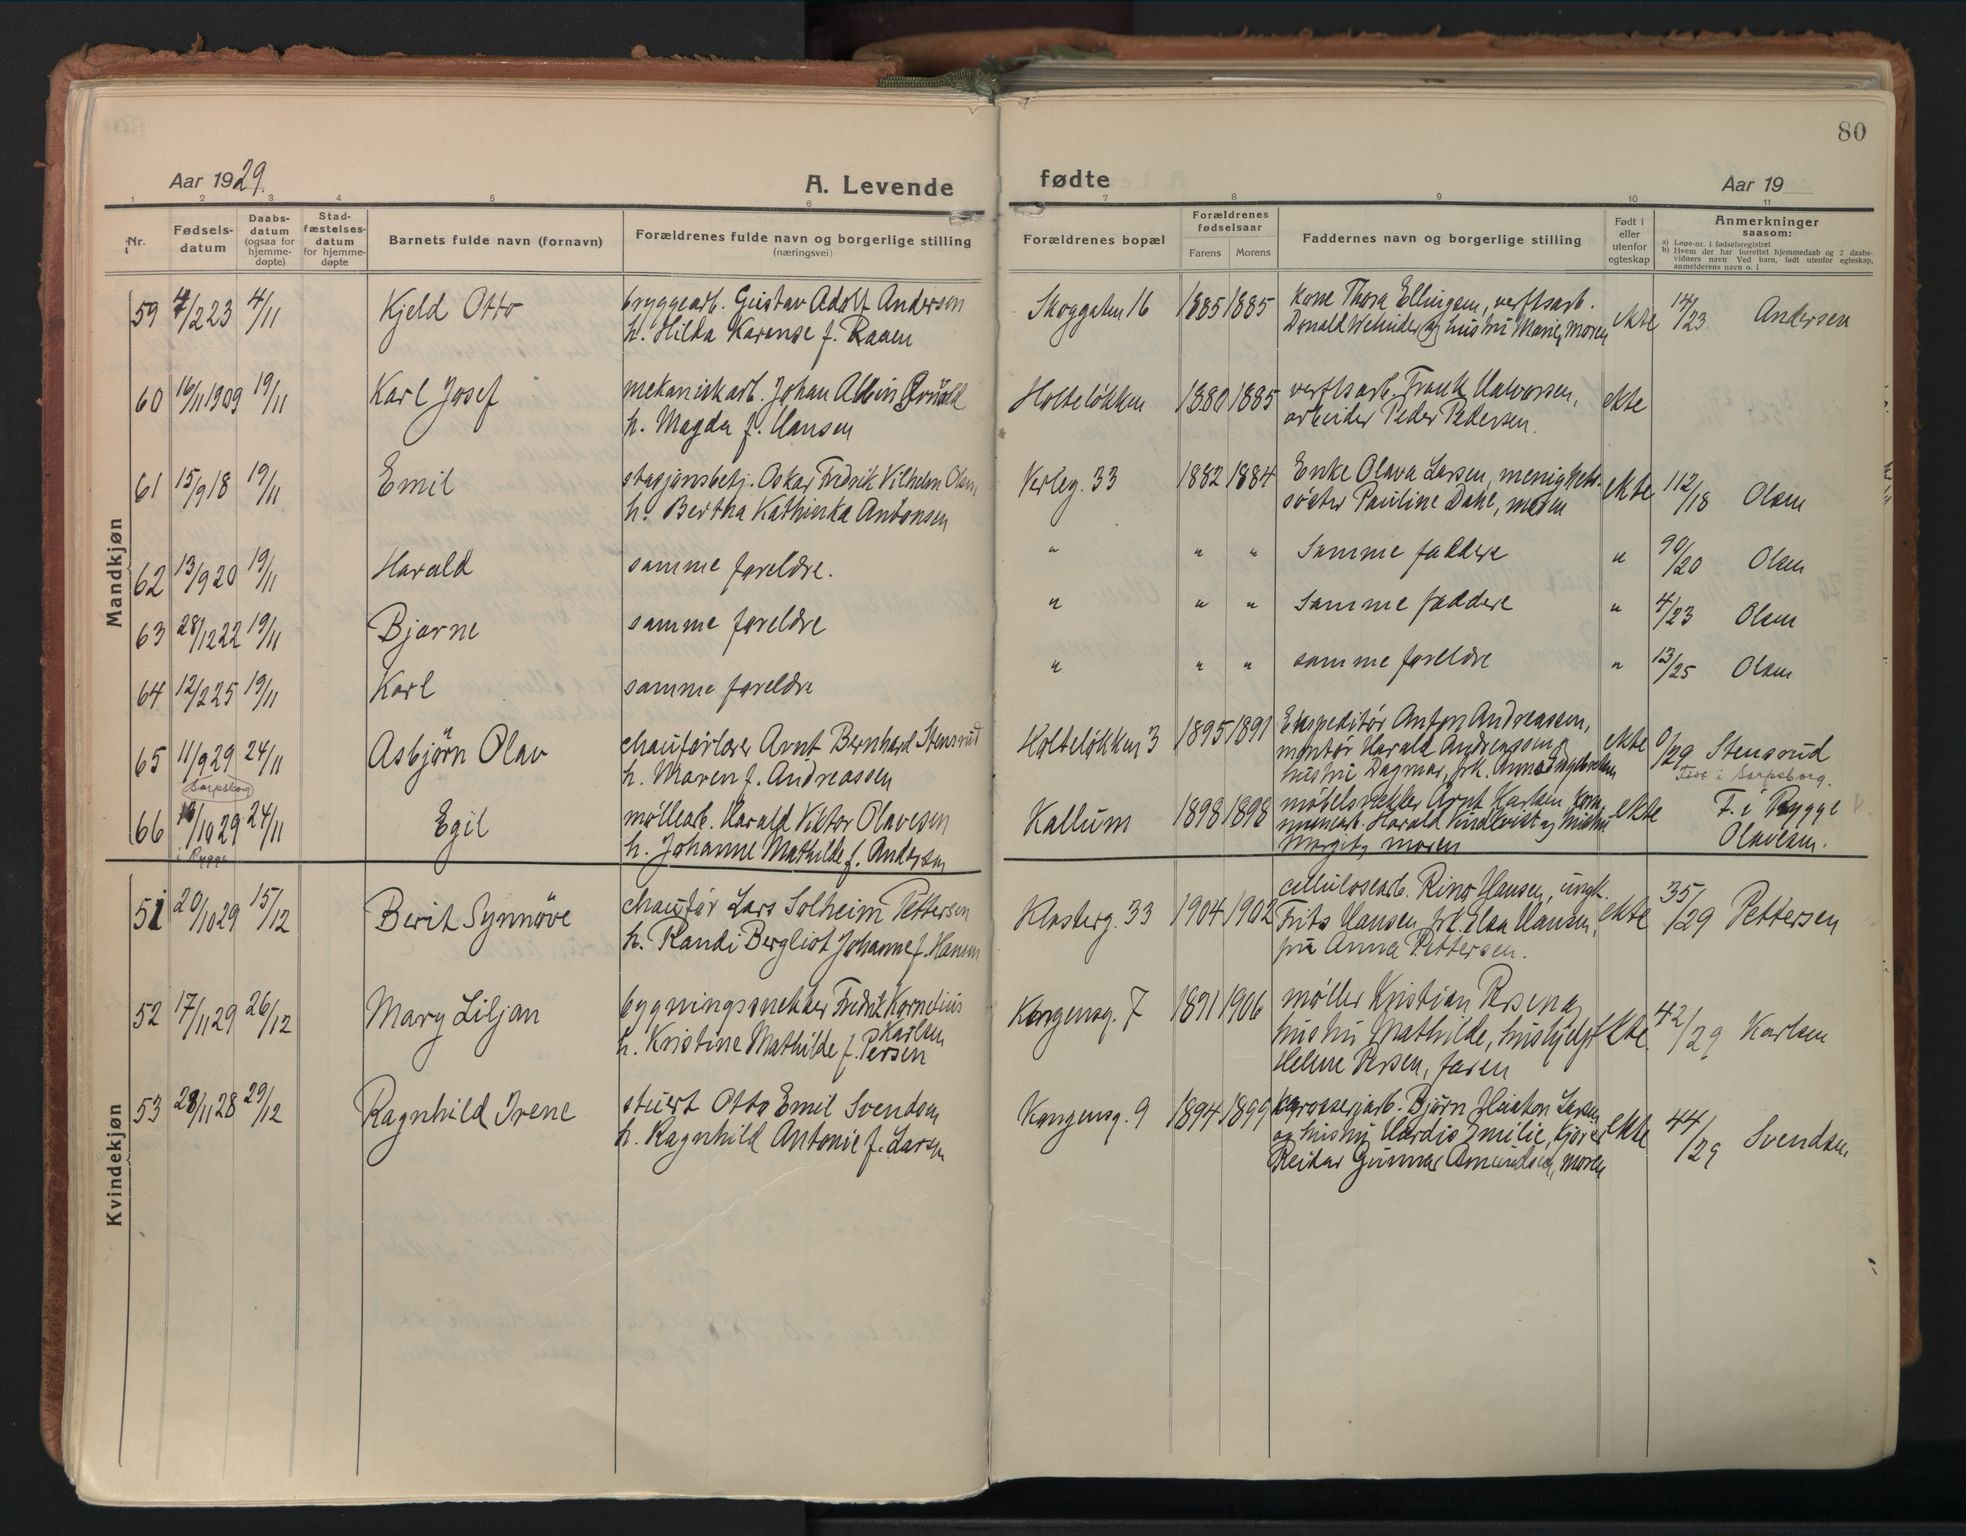 80
Aar 1929.
A. Levende
fødte
Aar 19
1 2 3 4 5 6 7 8 9 10 11
Nr.
Fødsels-
datum
Daabs-
datum
(ogsaa for
hjemme-
døpte)
Stad-
fæstelses-
datum
for hjemme-
døpte
Barnets fulde navn (fornavn)
Forældrenes fulde navn og borgerlige stilling
(næringsvei)
Forældrenes bopæl
Forældrenes
fødselsaar
Farens Morens
Faddernes navn og borgerlige stilling
Født i
eller
utenfor
egteskap
Anmerkninger
saasom:
a) Løpe-nr. i fødselsregistret
b) Hvem der har forrettet hjemmedaab og 2 daabs-
vidners navn Ved barn, født utenfor egteskap,
anmelderens navn o. l
Mandkjøn
59 4/2 23 4/11 Kjeld Otto bryggearb. Gustav Adolf Andersen
h. Hilda Karense f. Raaen
Skoggaten 16 1885 1885 Kone Thora Ellingsen, verftsarb.
Donald og hustru Marie, moren
ekte 14/23 Andersen
60 16/11 1909 19/11 Karl Josef mekaniskarb. Johan Albin
h. Magda f. Hansen
Holteløkken 1880 1885 verftsarb. Frank Halvorsen,
arbeider Peder Pedersen.
ekte
61 15/9 18 19/11 Emil stasjonsbetj. Oskar Fredrik Vilhelm Olsen
h. Bertha Kathinka Antonsen
Verleg. 33 1882 1884 Enke Olava Larsen, menighets-
søster Pauline Dahl, moren
ekte 112/18 Olsen
62 13/9 20 19/11 Harald samme foreldre. " " " Samme faddere " 90/20 Olsen
63 28/12 22 19/11 Bjarne samme foreldre " " " Samme faddere " 4/23 Olsen
64 12/2 25 19/11 Karl samme foreldre " " " samme foreldre " 13/25 Olsen
65 11/9 29 24/11 Asbjørn Olav chauførlærer Arnt Bernhard Stensrud
Sarpsborg
h. Maren f. Andreassen
Holteløkken 3 1895 1891 Ekspeditør Anton Andreassen,
montør Harald Andreassen og
hustru Dagmar, frk. Anna
ekte 0/29 Stensrud
Født i Sarpsborg.
66 10 29 24/11 Egil møllearb. Harald Viktor Olavesen
i Rygge
h. Johanne Mathilde f. Andersen
Kallum 1898 1898 møbelsnekker Arnt Karlsen,
Harald Lindkvist og hustru
Margit, moren
ekte F. i Rygge
Olavesen.
Kvindekjøn
51 20/10 29 15/12 Berit Synnøve chauffør Lars Solheim Pettersen
h. Randi Bergliot Johanne f. Hansen
Klosterg. 33 1904 1902 cellulosearb. Rino Hansen, ungk.
Frits Hansen, frk. Elsa Hansen,
fru Anna Pettersen.
ekte 35/29 Pettersen
52 17/11 29 26/12 Mary Liljan bygningssnekker Fredrik Kornelius
Karlsen
h. Kristine Mathilde f. Persen
Kongensg. 7 1891 1906 møller Kristian Persen og
hustru Mathilde, hushjelp
Helene Persen, faren
ekte 42/29 Karlsen
53 28/11 28 29/12 Ragnhild Irene stuert Otto Emil Svendsen
h. Ragnhild Antonie f. Larsen
Kongensg. 9 1894 1899 karosseriarb. Bjørn Larsen
og hustru Hardis Emilie, kjører
Reidar Gunnar Amundsen, moren
ekte 44/29 Svendsen,